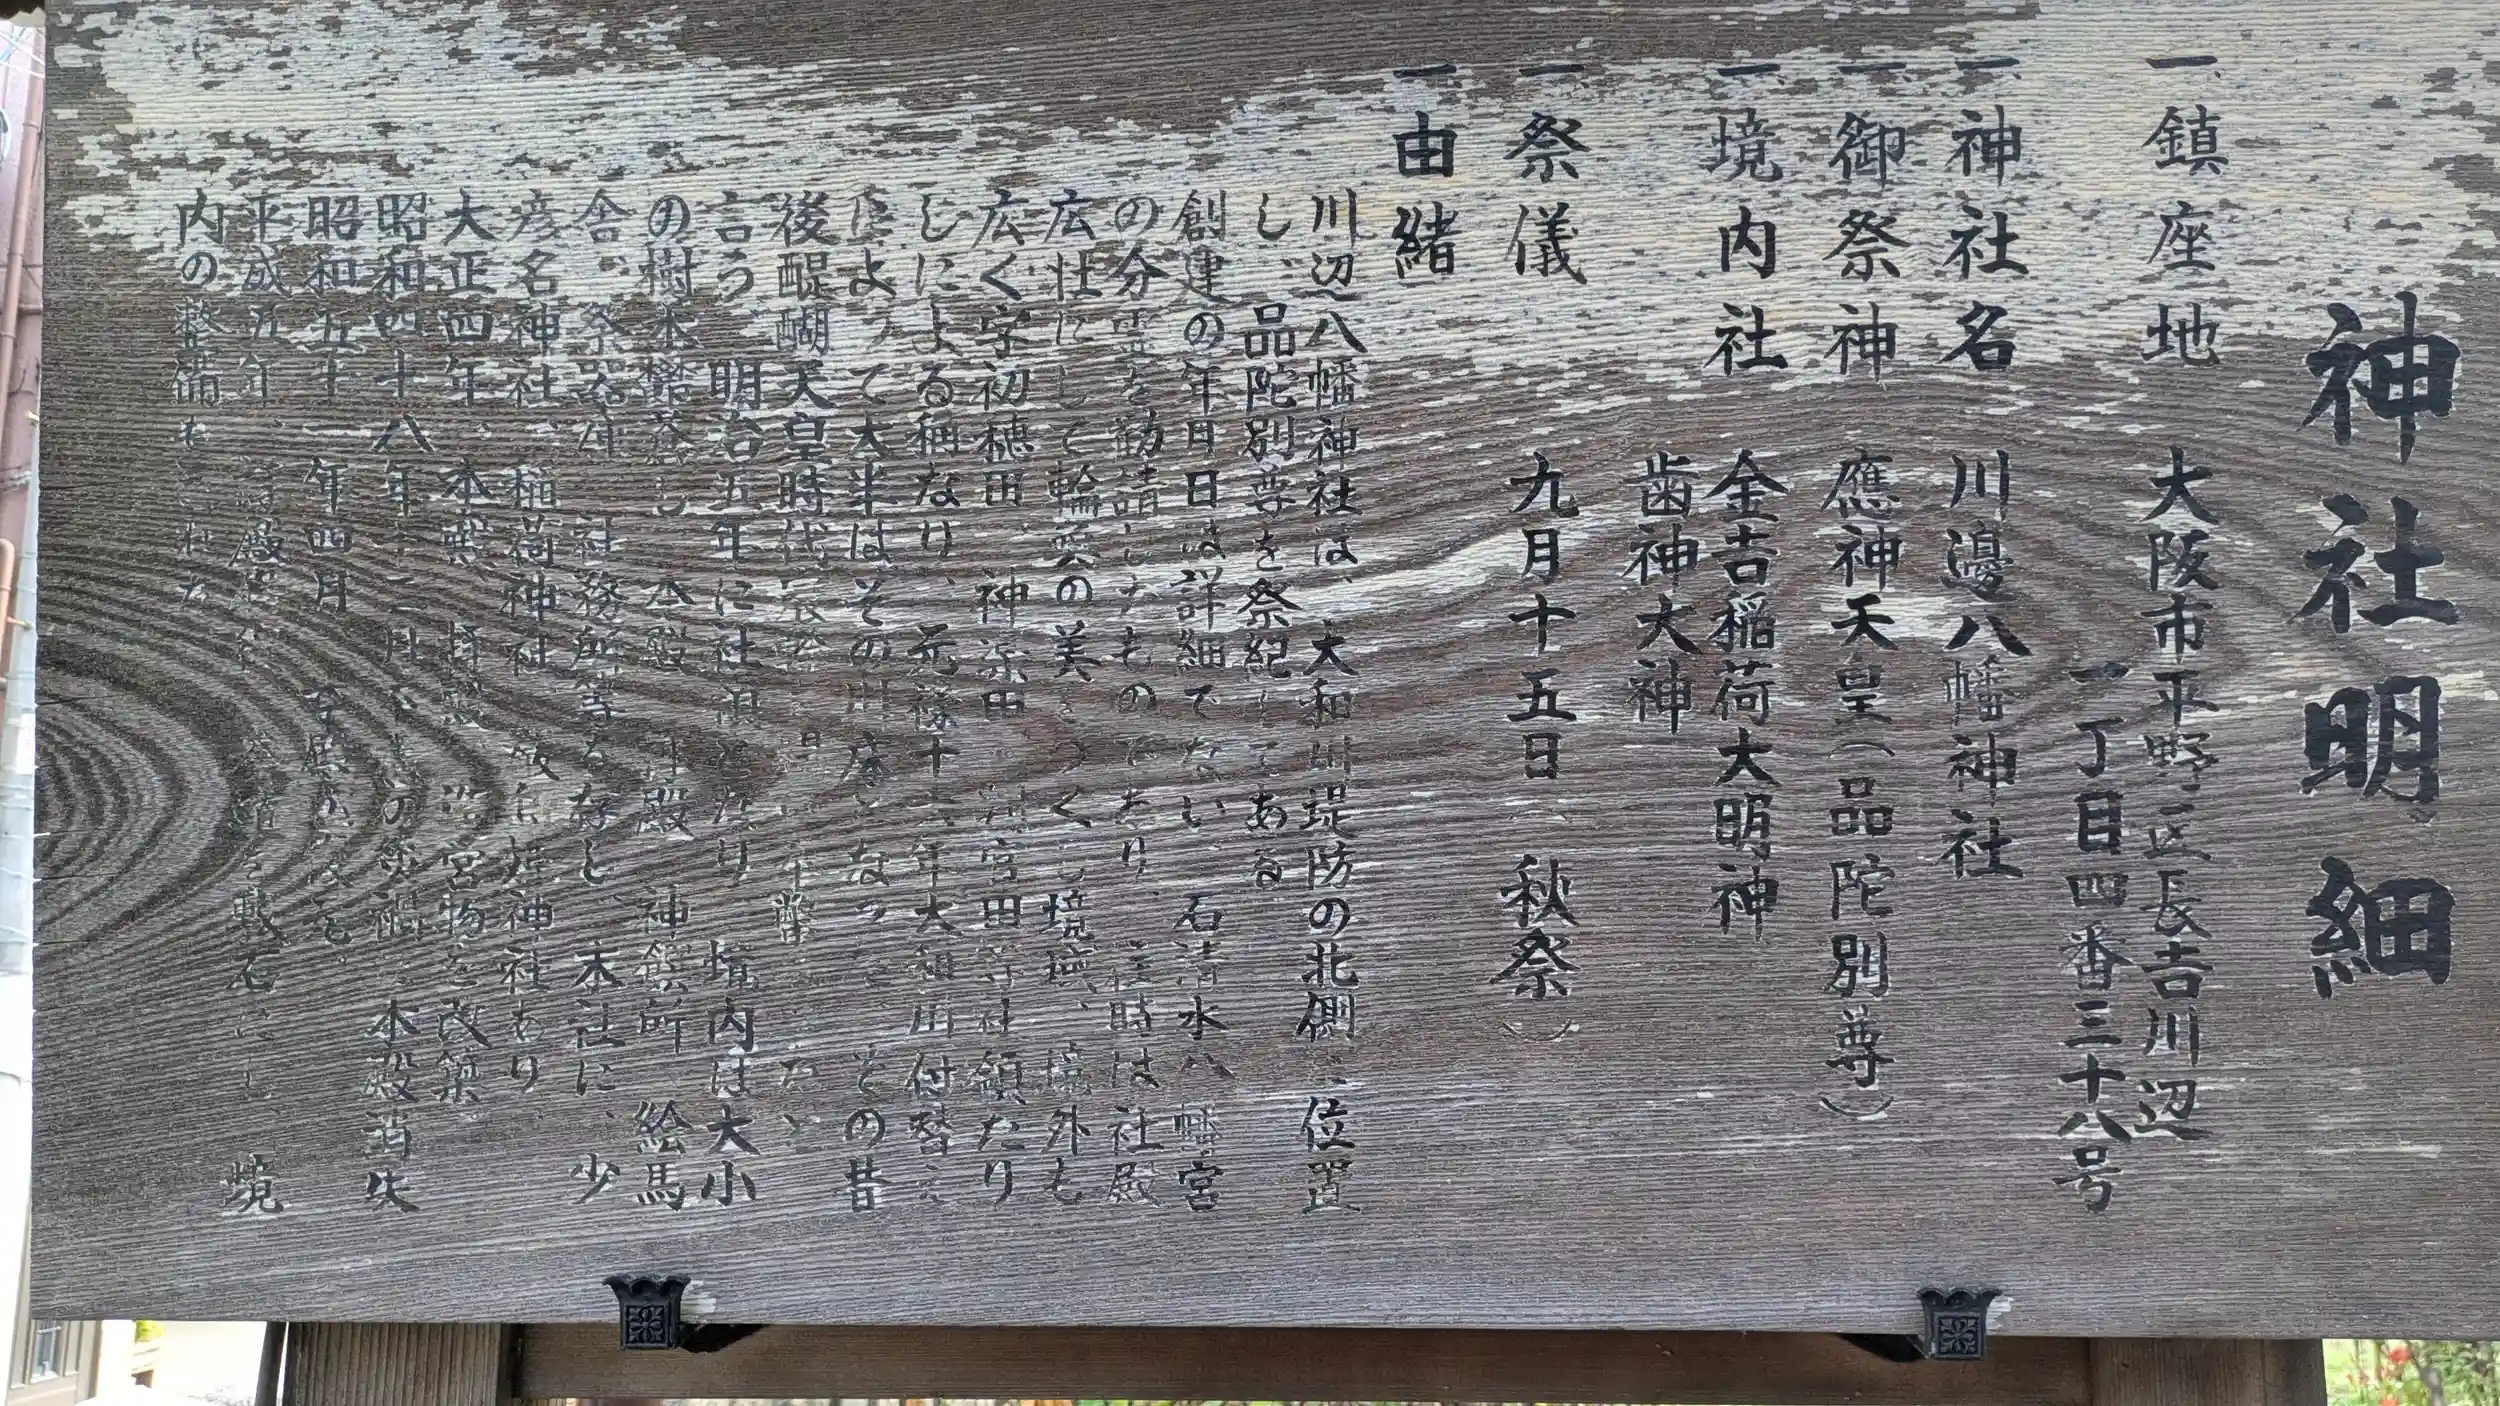 神社明細
一、鎮座地 大阪市平野区長吉川辺
一丁目四番三十八号
一、神社名 川邊八幡神社
一、御祭神 應神天皇(品陀別尊)
一、境内社 金吉稲荷大明神
歯神大神
一、祭儀 九月十五日(秋祭)
一、由緒
川辺八幡神社は、大和川堤防の北側に位置
し、品陀別尊を祭紀してある
創建の年月日は詳細でない、石清水八幡宮
の分霊を勧請したものであり、往時は社殿
広壮にして輪奐の美をつくし境域、境外も
広く字初穂田、神楽田、判官田等社領たり
しによる称なり、元禄十六年大和川付替え
によって大半はその川床となって、その昔
後醍醐天皇時代
言う、明治五年に村社となり 境内は大小
の樹木鬱蒼し 本殿 拝殿 神饌所 絵馬
舎、祭器庫 社務所等を存し、末社に、少
彦名神社、稲荷神社、姫神社あり、
大正四年、本殿、拝殿、造営物を改築、
昭和四十八年十二月 の災禍に本殿消失
昭和五十一年四月
平成五年、 敷石にし、境
内の整備もされた